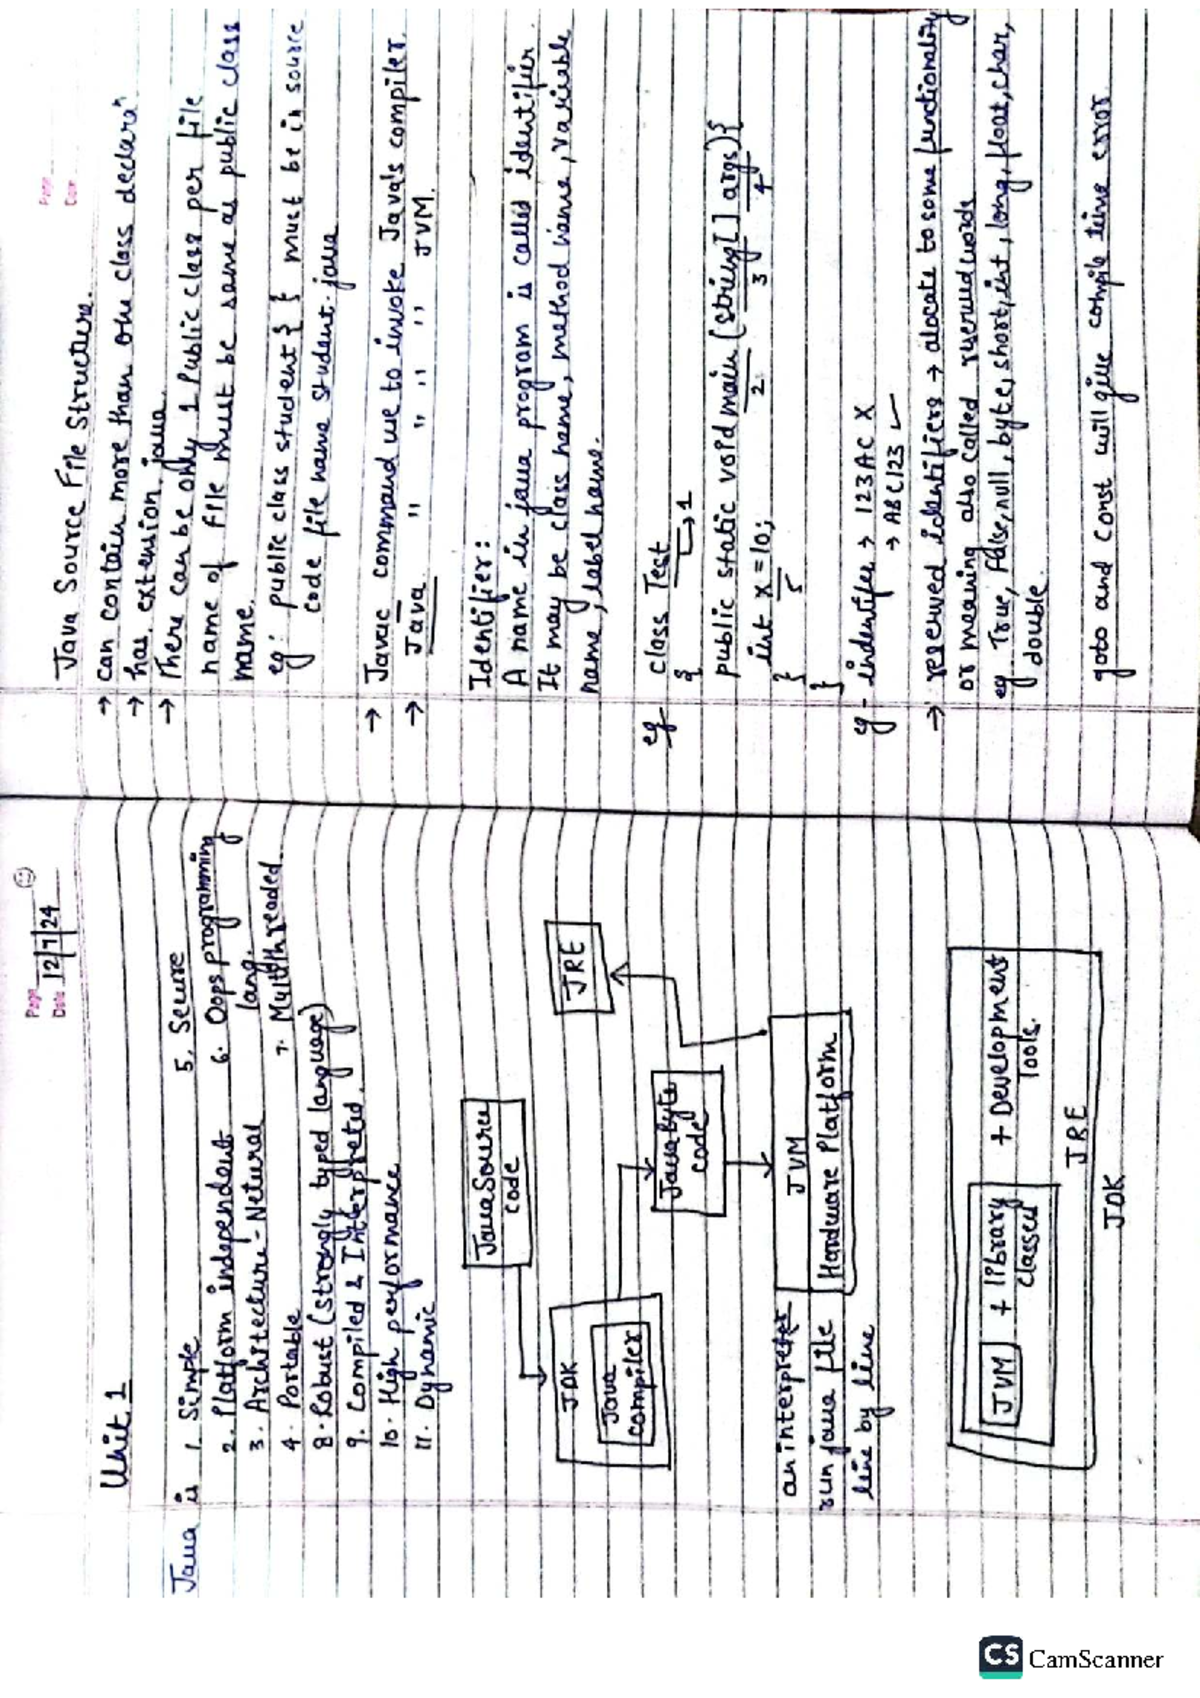 Page
Date 12/7/24
Unit 1
Java is 1. Simple
5. Secure
2. Platform independent
6. Oops programming
lang.
3. Architecture-Netural
7. Multithreaded
4. Portable
8. Robust (strongly typed language)
9. Compiled & Interpreted.
10. High performance
11. Dynamic
Java Source
code
JDK
Java
compiler
JRE
Java byte
code
JVM
Hardware Platform
an interpreter
run java file
line by line
JVM + library
classed
+ Development
Tools.
JRE
JDK
Page
Date
Java Source File Structure.
→ can contain more than one class declaraⁿ
→ has extension .java
→ There can be only 1 Public class per file
name of file must be same as public class
name.
eg: public class student { } must be in source
code file name student.java
→ Javac command use to invoke Java's compiler.
→ Java " " " " " JVM.
Identifier:
A name in java program is called identifier.
It may be class name, method name, variable
name, label name.
eg class Test → 1
{
public static void main (string[] args){
2 3 4
int x = 10;
5
}
}
eg - indentifer → 123AC X
→ ABC123 ✓
→ reserwed identifiers → alocate to some functionality
or meaning also called reserved words
eg True, False, null, byte, short, int, long, float, char,
double.
goto and Const will give compile time error
CS CamScanner